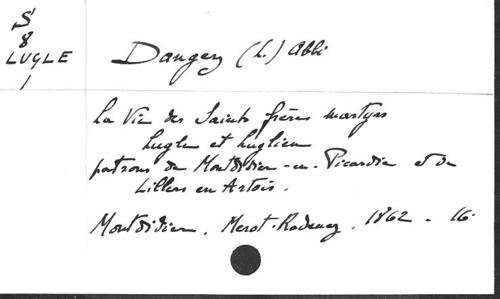 S
8
LUGLE
1
Dangez (L.) Abbé
La Vie des Saints frères martyrs
Lugle et Luglien
patrons de Montdidier-en-Picardie et de
Lillers en Artois.
Montdidier, Merot-Radenez, 1862 - 16.